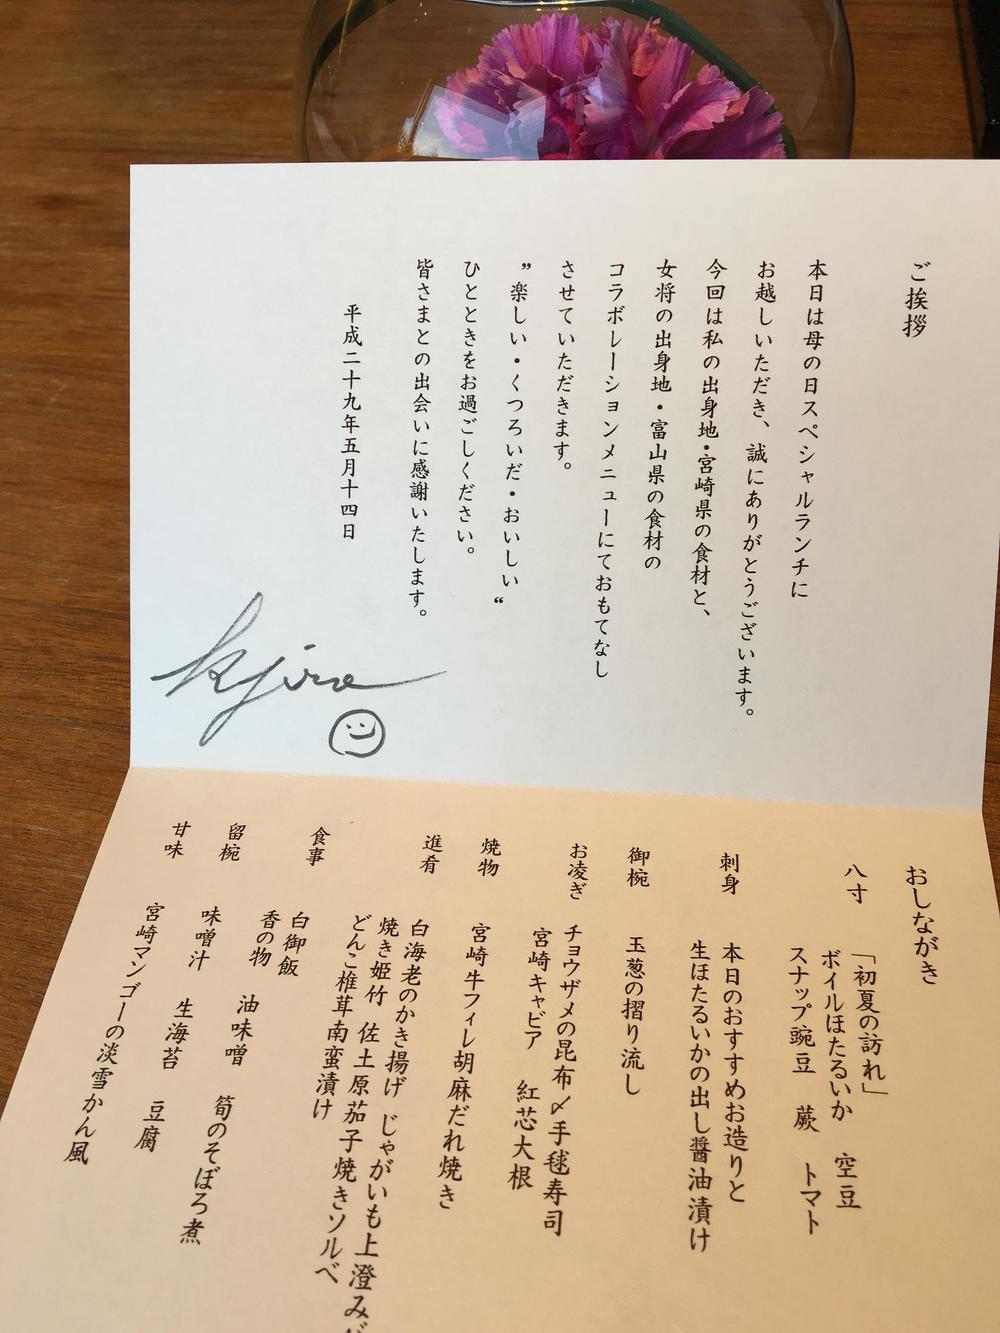 ご挨拶
本日は母の日スペシャルランチに
お越しいただき、誠にありがとうございます。
今回は私の出身地・宮崎県の食材と、
女将の出身地・富山県の食材の
コラボレーションメニューにておもてなし
させていただきます。
”楽しい・くつろいだ・おいしい“
ひとときをお過ごしください。
皆さまとの出会いに感謝いたします。
平成二十九年五月十四日
kjiro
おしながき
八寸 「初夏の訪れ」
ボイルほたるいか 空豆
スナップ豌豆 蕨 トマト
刺身 本日のおすすめお造りと
生ほたるいかの出し醤油漬け
御椀 玉葱の摺り流し
お凌ぎ チョウザメの昆布〆手毬寿司
宮崎キャビア 紅芯大根
焼物 宮崎牛フィレ胡麻だれ焼き
進肴 白海老のかき揚げ じゃがいも上澄み
焼き姫竹 佐土原茄子焼きソルベ
どんこ椎茸南蛮漬け
食事 白御飯
香の物 油味噌 筍のそぼろ煮
留椀 味噌汁 生海苔 豆腐
甘味 宮崎マンゴーの淡雪かん風